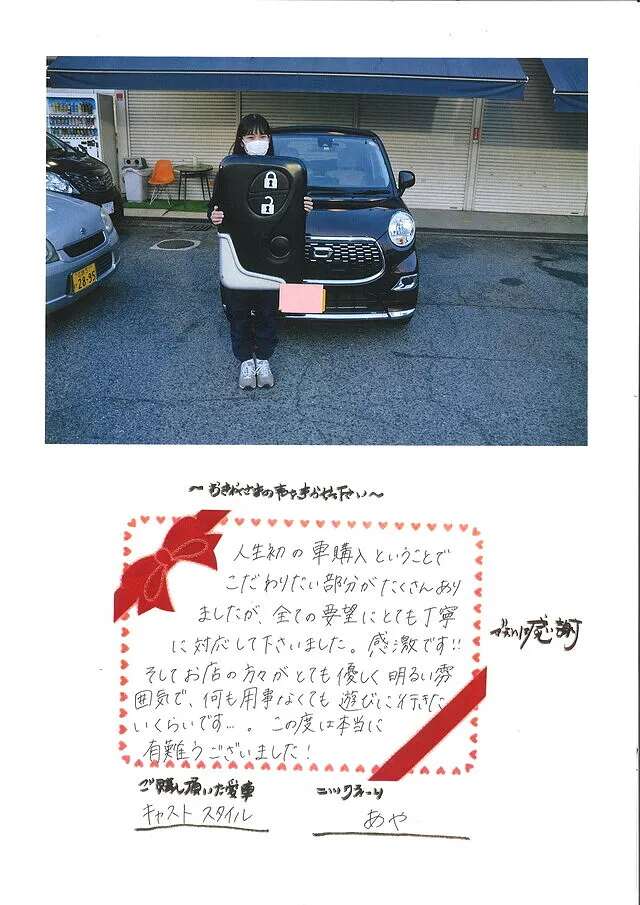 28-95
〜お客さまの声をきかせて下さい〜
人生初の車購入ということで
こだわりたい部分がたくさんあり
ましたが、全ての要望にとても丁寧
に対応して下さいました。感激です!!
そしてお店の方々がとても優しく明るい雰
囲気で、何も用事なくても遊びに行きた
いくらいです…。この度は本当に
有難うございました!
感謝
ご購入頂いた愛車
ニックネーム
キャスト スタイル
あや